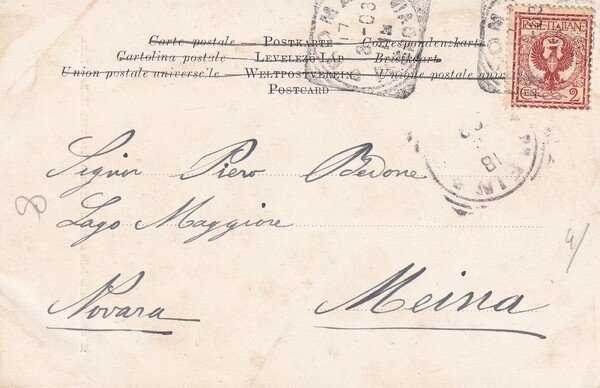 Carte postale Postkarte Correspondenzkarte
Cartolina postale Levelező-Lap Briefkaart
Union postale universelle Weltpostverein Unione postale
Postcard
POSTE ITALIANE
CEN 2
17
8-03
18
Signor Piero Bedone
Lago Maggiore
Meina
Novara